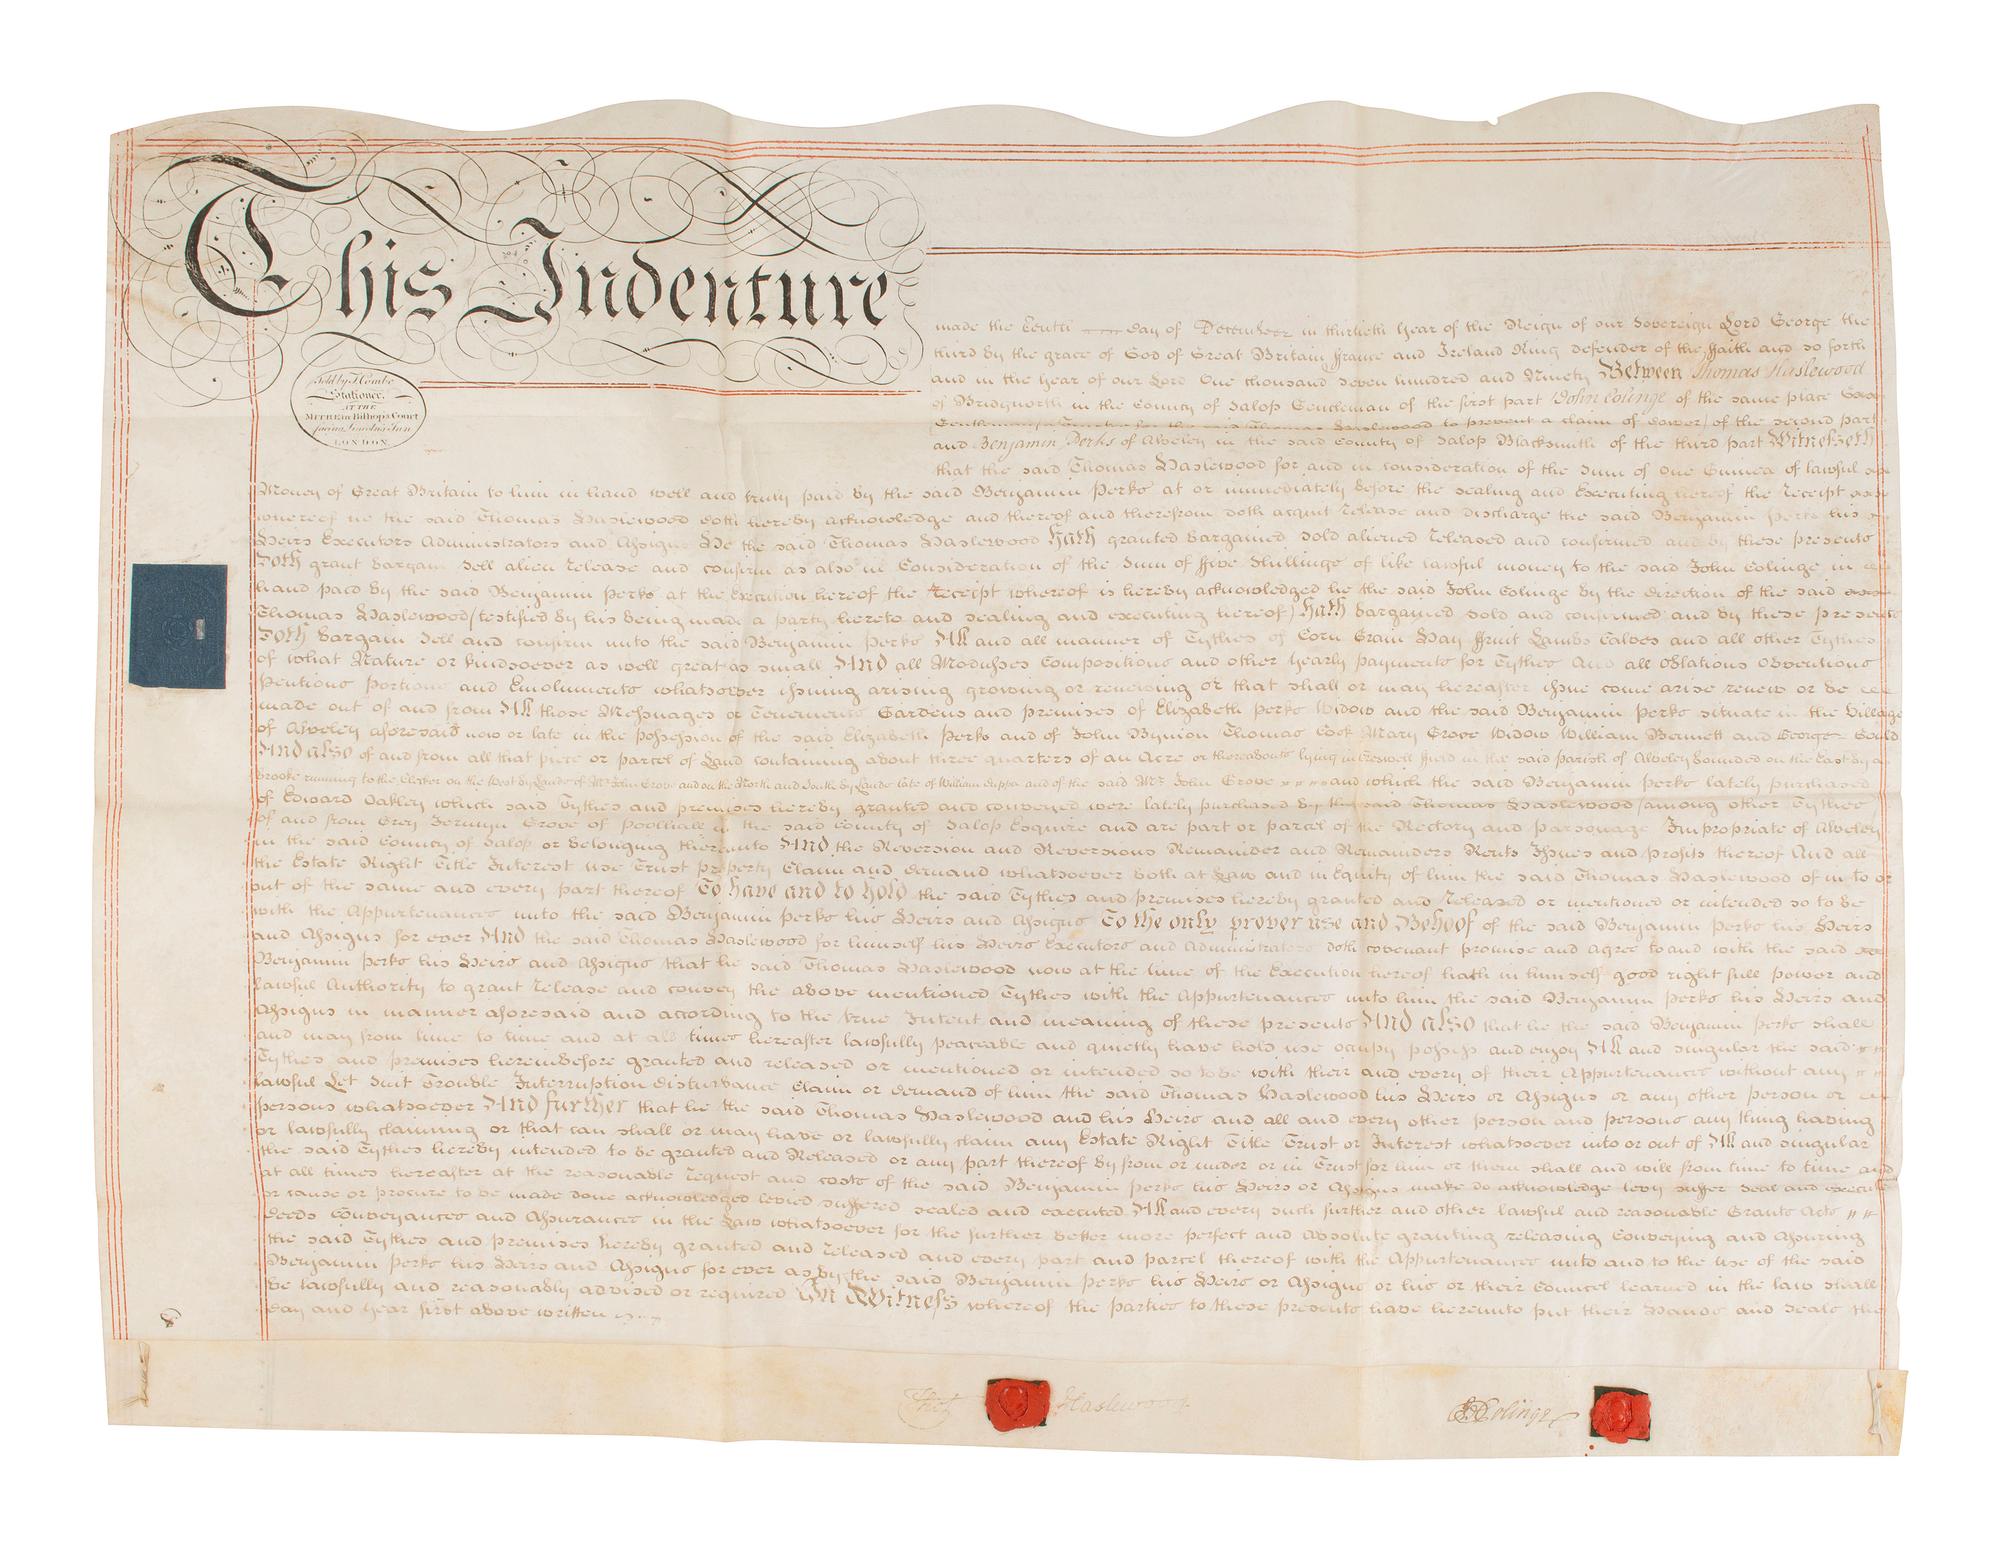 This Indenture
Sold by J. Combe
Stationer.
AT THE
MITRE in Bishop's Court
facing Lincolns Inn
LONDON.
made the Tenth day of December in thirtieth year of the Reign of our Sovereign Lord George the
third by the grace of God of Great Britain ffrance and Ireland King defender of the ffaith and so forth
and in the year of our Lord One thousand seven hundred and Ninety Between Thomas Haslewood
of Bridgnorth in the County of Salop Gentleman of the first part John Colinge of the same place
Gentleman (a Trustee for the said Thomas Haslewood to prevent a claim of dower) of the second part
and Benjamin Perks of Alveley in the said County of Salop Blacksmith of the third part Witnesseth
that the said Thomas Haslewood for and in consideration of the Sum of One Guinea of lawful
Money of Great Britain to him in hand well and truly paid by the said Benjamin Perks at or immediately before the sealing and Executing hereof the Receipt
whereof he the said Thomas Haslewood doth hereby acknowledge and thereof and therefrom doth acquit release and discharge the said Benjamin Perks his
Heirs Executors Administrators and Assigns He the said Thomas Haslewood Hath granted bargained sold aliened released and confirmed and by these presents
Doth grant bargain sell alien release and confirm as also in Consideration of the Sum of ffive Shillings of like lawful money to the said John Colinge in
hand paid by the said Benjamin Perks at the Execution hereof the Receipt whereof is hereby acknowledged he the said John Colinge by the direction of the said
Thomas Haslewood (testified by his being made a party hereto and sealing and executing hereof) Hath bargained sold and confirmed and by these presents
Doth bargain sell and confirm unto the said Benjamin Perks All and all manner of Tythes of Corn Grain Hay ffruit Lambs Calves and all other Tythes
of what Nature or kindsoever as well great as small And all Modusses Compositions and other yearly payments for Tythes And all oblations obventions
pentions portions and Emoluments whatsoever issuing arising growing or renewing or that shall or may hereafter issue come arise renew or be
made out of and from All those Messuages or Tenements Gardens and premises of Elizabeth Perks Widow and the said Benjamin Perks situate in the Village
of Alveley aforesaid now or late in the possession of the said Elizabeth Perks and of John Bynion Thomas Cook Mary Grove Widow William Bennett and George Gould
And also of and from all that piece or parcel of Land containing about three quarters of an Acre or thereabouts lying in Creswell ffield in the said parish of Alveley bounded on the East by a
Brooke running to the on the West by Lands of Mr. John Grove and on the North and South by Lands late of William and of the said Mr. John Grove and which the said Benjamin Perks lately purchased
of Edward Oakley which said Tythes and premises hereby granted and conveyed were lately purchased by the said Thomas Haslewood (among other Tythes)
of and from Grey Jermyn Grove of Poolhall in the said County of Salop Esquire and are part or parcel of the Rectory and parsonage Impropriate of Alveley
in the said County of Salop or belonging thereunto And the Reversion and Reversions Remainder and Remainders Rents Issues and profits thereof And all
the Estate Right Title Interest use Trust property Claim and demand whatsoever both at Law and in Equity of him the said Thomas Haslewood of in to or
out of the same and every part thereof To have and to hold the said Tythes and premises hereby granted and released or mentioned or intended so to be
with the Appurtenances unto the said Benjamin Perks his Heirs and Assigns To the only proper use and Behoof of the said Benjamin Perks his Heirs
and Assigns for ever And the said Thomas Haslewood for himself his Heirs Executors and Administrators doth covenant promise and agree to and with the said
Benjamin Perks his Heirs and Assigns that he said Thomas Haslewood now at the time of the Execution hereof hath in himself good right full power and
lawful Authority to grant release and convey the above mentioned Tythes with the Appurtenances unto him the said Benjamin Perks his Heirs and
Assigns in manner aforesaid and according to the true Intent and meaning of these presents And also that he the said Benjamin Perks shall
and may from time to time and at all times hereafter lawfully peaceable and quietly have hold use occupy possess and enjoy All and singular the said
Tythes and premises hereinbefore granted and released or mentioned or intended so to be with their and every of their Appurtenances without any
lawful Let Suit Trouble Interruption disturbance Claim or demand of him the said Thomas Haslewood his Heirs or Assigns or any other person or
persons whatsoever And further that he the said Thomas Haslewood and his Heirs and all and every other person and persons any thing having
or lawfully claiming or that can shall or may have or lawfully claim any Estate Right Title Trust or Interest whatsoever into or out of All and singular
the said Tythes hereby intended to be granted and Released or any part thereof by from or under or in Trust for him or them shall and will from time to time and
at all times hereafter at the reasonable request and costs of the said Benjamin Perks his Heirs or Assigns make do acknowledge levy suffer seal and execute
or cause or procure to be made done acknowledged levied suffered sealed and executed All and every such further and other lawful and reasonable Grants Acts
deeds Conveyances and Assurances in the Law whatsoever for the further better more perfect and absolute granting releasing Conveying and Assuring
the said Tythes and premises hereby granted and released and every part and parcel thereof with the Appurtenances unto and to the use of the said
Benjamin Perks his Heirs and Assigns for ever as by the said Benjamin Perks his Heirs or Assigns or his or their Councel learned in the law shall
be lawfully and reasonably advised or required In Witness whereof the parties to these presents have hereunto put their Hands and Seals the
day and year first above written
Thos Haslewood
J Colinge